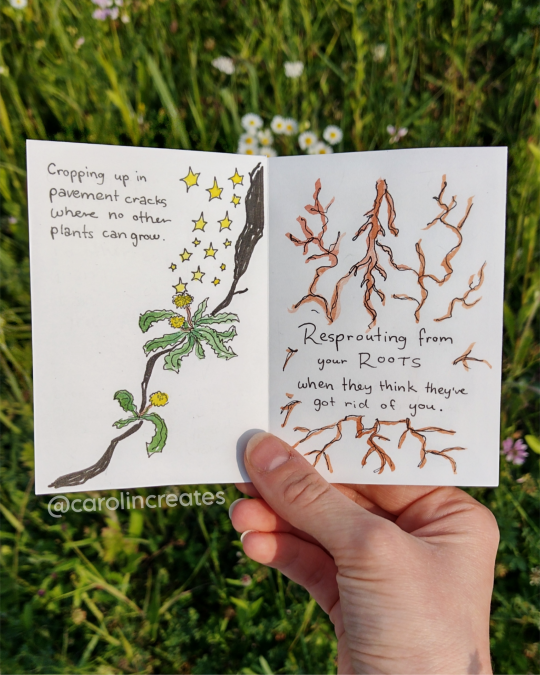 Cropping up in
pavement cracks
where no other
plants can grow.
Resprouting from
your ROOTS
when they think they've
got rid of you.
@carolincreates